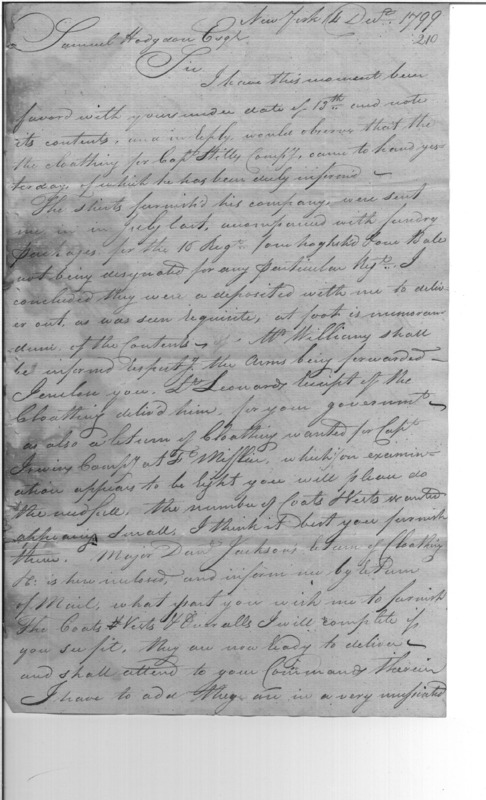 New York 14 Decr. 1799
210
Samuel Hodgdon Esqr.
Sir
I have this moment been
favord with yours under date of 13th and note
its contents, and in reply would observe that the
the cloathing for Capt Stilles Compy. came to hand yes-
terday, of which he has been duly informd
The shirts furnish'd his company, were sent
me in July last, accompanied with sundry
packages for the 16 Regt. four hogsheds four Bale
not being designated for any particular Regt. I
concluded they were a deposited with me to deliv-
er out, as was seen requisite, at foot is memoran-
dum of the Contents Mr Williams shall
be informd respectg. the Arms being forwarded
I enclose you Lt. Leonards receipt of the
Cloathing deliverd him for your government
as also a Return of Cloathing wanted for Capt
Irvins Compy at Ft Mifflin, which on examin-
ation appears to be light you will please do
the needfull. the number of Coats & Vests wanted
appearing small, I think it best you furnish
them. Major Danl. Jacksons Return of Cloathing
&c. is here inclosed, and inform me by Return
of Mail, what part you wish me to furnish
The Coats & Vests & Overalls I will complete if
you see fit, they are now ready to deliver
and shall attend to your Commands therein
I have to add they are in a very